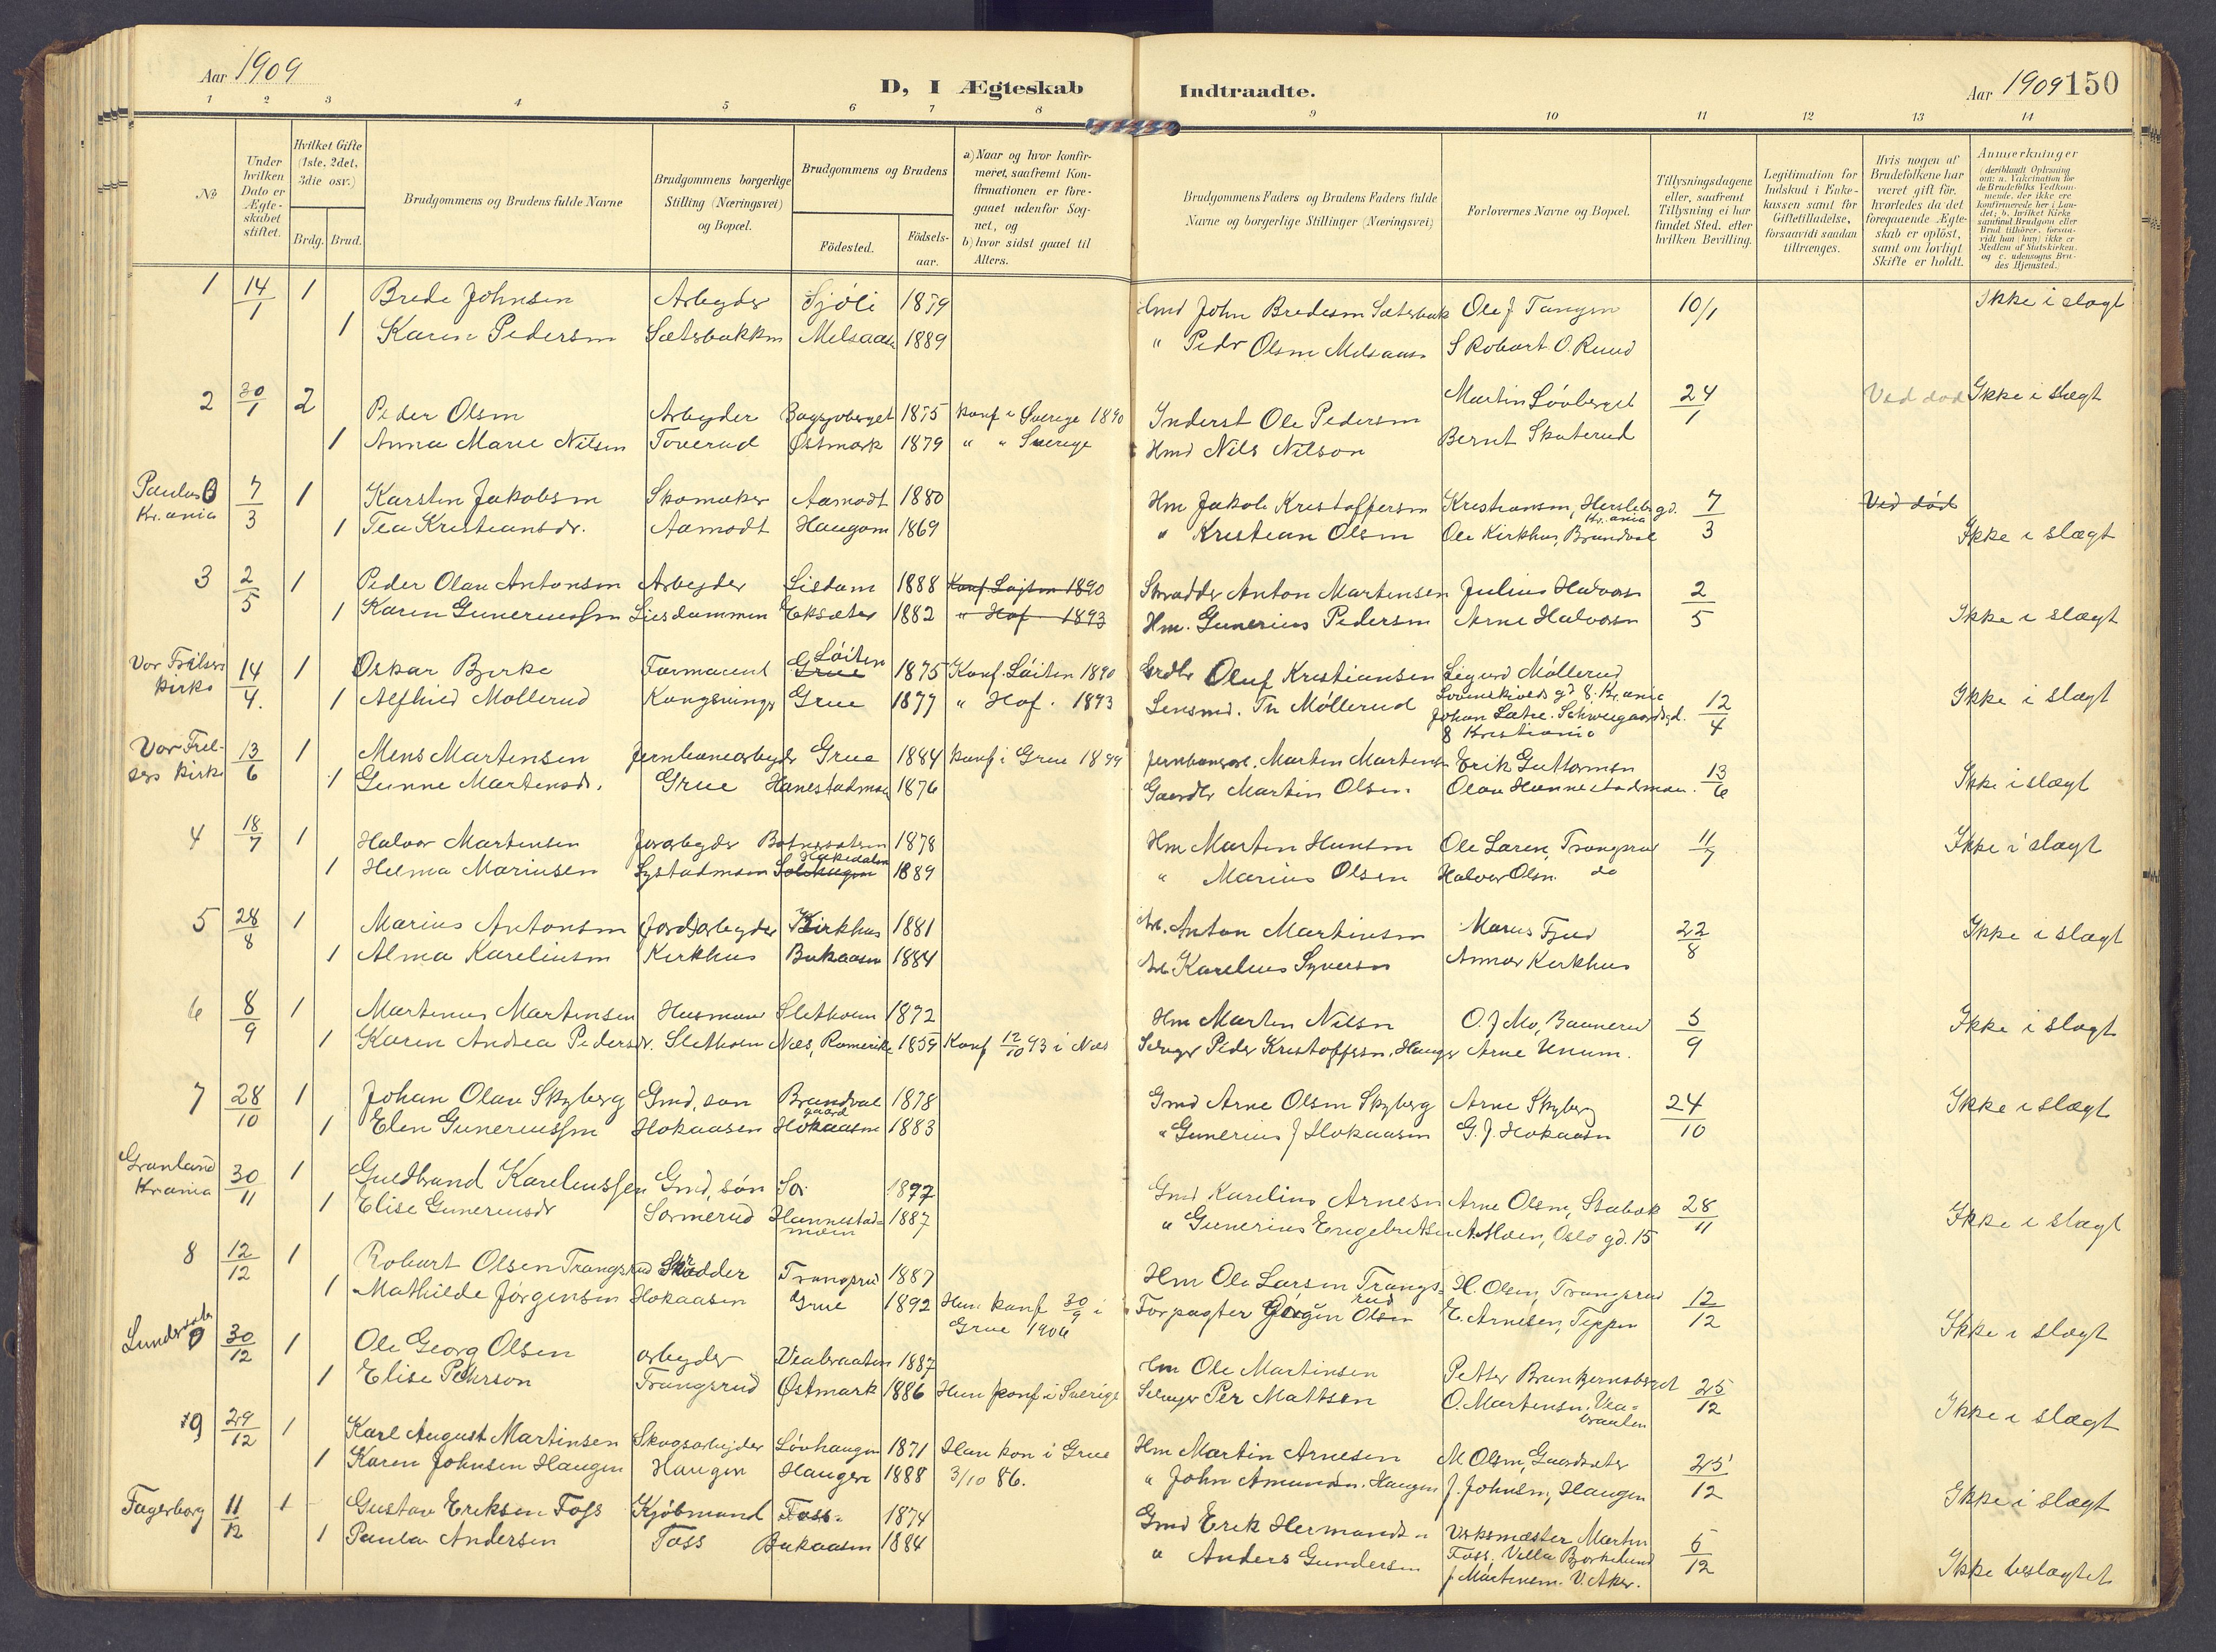 Aar 1909
D, I Ægteskab
Indtraadte.
Aar 1909 150
1 2 3 4 5 6 7 8 9 10 11 12 13 14
No
Under hvilken Dato er Ægteskabet stiftet.
Hvilket Gifte (1ste, 2det, 3die osv.)
Brdg. Brud.
Brudgommens og Brudens fulde Navne
Brudgommens borgerlige Stilling (Næringsvei) og Bopæl.
Brudgommens og Brudens
Födested.
Födsels-aar.
a) Naar og hvor konfir-
meret, saafremt Kon-
firmationen er fore-
gaaet udenfor Sog-
net, og
b) hvor sidst gaaet til
Alters.
Brudgommens Faders og Brudens Faders fulde
Navne og borgerlige Stillinger (Næringsvei)
Forlovernes Navne og Bopæl.
Tillysningsdagene
eller, saafremt
Tillysning ei har
fundet Sted, efter
hvilken Bevilling.
Legitimation for
Indskud i Enke-
kassen samt for
Giftetilladelse,
forsaavidt saadan
tiltrænges.
Hvis nogen af
Brudefolkene har
været gift för,
hvorledes da det
foregaaende Ægte-
skab er oplöst,
samt om lovligt
Skifte er holdt.
Anmerkninger
(deriblandt Oplysning
om: a. Vakcination for
de Brudefolks Vedkom-
mende, der ikke ere
konfirmerede her i Lan-
det; b. hvilket Kirke-
samfund Brudgom eller
Brud tilhörer, forsaa-
vidt han (hun) ikke er
Medlem af Statskirken,
og c. udensogns Bru-
des Hjemsted.)
1 14/1 1 Brede Johnsen Arbeyder Sjöli 1879 Hmd John Bredesen Sætsbak Ole J Tangen 10/1 Ikke i slagt
1 Karen Pedersen Sætsbakken Melsaasen 1889 " Peder Olsen Melsaasen S Robart O. Ruud
2 30/1 2 Peder Olsen Arbeyder 1875 konf i Sverige 1890 Inderst Ole Pedersen Martin Lövberget 24/1 Ved död Ikke i slægt
1 Anna Marie Nilsen Toverud Østmark 1879 " " Sverige Hmd Nils Nilson Bernt Skuterud
Paulus
Kr.ania 7/3 1 Karsten Jakobsen Skomaker Aamodt 1880 Hm Jakob Kristoffersen Kristiansen, Herslebsgd. 7/3 Ved död
Kr.ania
1 Tea Kristiansdr. Aamodt Haugom 1869 " Kristian Olsen Ole Kirkhus, Brandval Ikke i slægt
3 2/5 1 Peder Olau Antonsen Arbeyder Lisdam 1888 Konf. Løiten 1890 Skrædder Anton Martensen Julius Halvorsen 2/5
1 Karen Guneriussen Liisdammen Eksæter 1882 " Hof 1893 Hm. Gunerius Pedersen Arne Halvorsen Ikke i slægt
Vor Frelsers
kirke 14/4. 1 Oskar Bjerke Farmaceut Grue Löiten 1875 Konf. Löiten 1890 Grdbr Oluf Kristiansen Sigurd Möllerud
1 Alfhild Mollerud Kongsvinger Grue 1877 " Hof. 1893 Lensmd. Th Möllerud Lovenskiolds gd 8. Kr.ania 12/4 Ikke i slægt
Johan Sætre. Schweigaardsgd.
8 Kristiania
Vor Frel-
sers kirke 13/6 1 Mens Martensen Jernbanearbeyder Grue 1884 konf i Grue 1899 Jernbanearb. Marten Martensen Erik Guttormsen 13/6
1 Gunne Martensdr. Grue Hanestadmoen 1876 Gaardbr Martin Olsen. Olau Hannestadmoen. Ikke i slægt
4 18/7 1 Halvor Martensen Jorarbeyder 1878 Hm Marten Hansen Ole Larsen, Trangsrud 11/7 Ikke i slægt
1 Helma Mariusen Hakedalen 1889 " Marius Olsen Halvor Olsen. do
5 28/8 1 Marius Antonsen Jordarbeyder Kirkhus 1881 Arb. Anton Martinsen Marius Fjeld 22/8 Ikke i slægt
1 Alma Kareliusen Kirkhus Bukaasen 1884 Arb Karelius Syversen Annar Kirkhus
6 8/9 1 Martinus Martinsen Husmand Sletholen 1872 Hm Marten Nilsen O. J Mo, Baunerud 5/9 Ikke i slagt
1 Karen Andrea Pedersdr. Sletholen Næs, Romerike 1859 Konf 12/10 93 i Næs Selveger Peder Kristoffersen, Hauger Arne Unum.
7 28/10 1 Johan Olau Skyberg Gmd, søn Brandval 1878 Gmd Arne Olsen Skyberg Arne Skyberg 24/10 Ikke i slægt
gaard
1 Elen Guneriussen Hokaasen Hokaasen 1883 " Gunerius J Hokaasen G. J. Hokaasen
Grønland
Kr.ania 30/11 1 Guldbrand Kareliussen Gmd, søn Sor 1877 Gmd Karelius Arnesen Arne Olsen, Stabæk 28/11
1 Elise Guneriusdr Sormerud Hannestad-
moen 1887 " Gunerius Engebretsen A. Moen, Oslo gd. 15 Ikke i slægt
8 12/12 1 Robart Olsen Trangsrud Skrædder Trangsrud 1887 Hm Ole Larsen Trangs-
rud H. Olsen Trangsrud 12/12
1 Mathilde Jørgensen Hokaasen Grue 1892 Hun konf 30/9 i
Grue 1906 Forpagter Jørgen Olsen E. Arnesen, Teppen Ikke i slægt
Lundersæter 30/12 1 Ole Georg Olsen arbeyder Veabraaten 1887 Hm Ole Martinsen Petter Brunkjernsberget 25/12
1 Elise Pehrson Trangsrud Østmark 1886 Hun konf i Sverige Selveger Per Mattsson O. Martensen, Vea-
braaten Ikke i slægt
9 29/12 1 Karl August Martinsen Skogsarbejder Lövhaugen 1871 Han kon i Grue Hm Martin Arnesen M Olsen, Gaardsæter 25/12
1 Karen Johnsen Haugen Haugen Haugen 1888 3/10 86. " John Amundsen. Haugen J. Johnsen, Haugen Ikke i slægt
Fagerborg 11/12 1 Gustav Eriksen Foss Kjøbmand Foss. 1874 Gmd Erik Hermandsen Verksmester Martin 5/12
1 Paula Andersen Foss Bukaasen 1884 " Anders Gundersen Foss, Villa Bjorkelund
J Martinsen. V. Aker. Ikke beslægtet